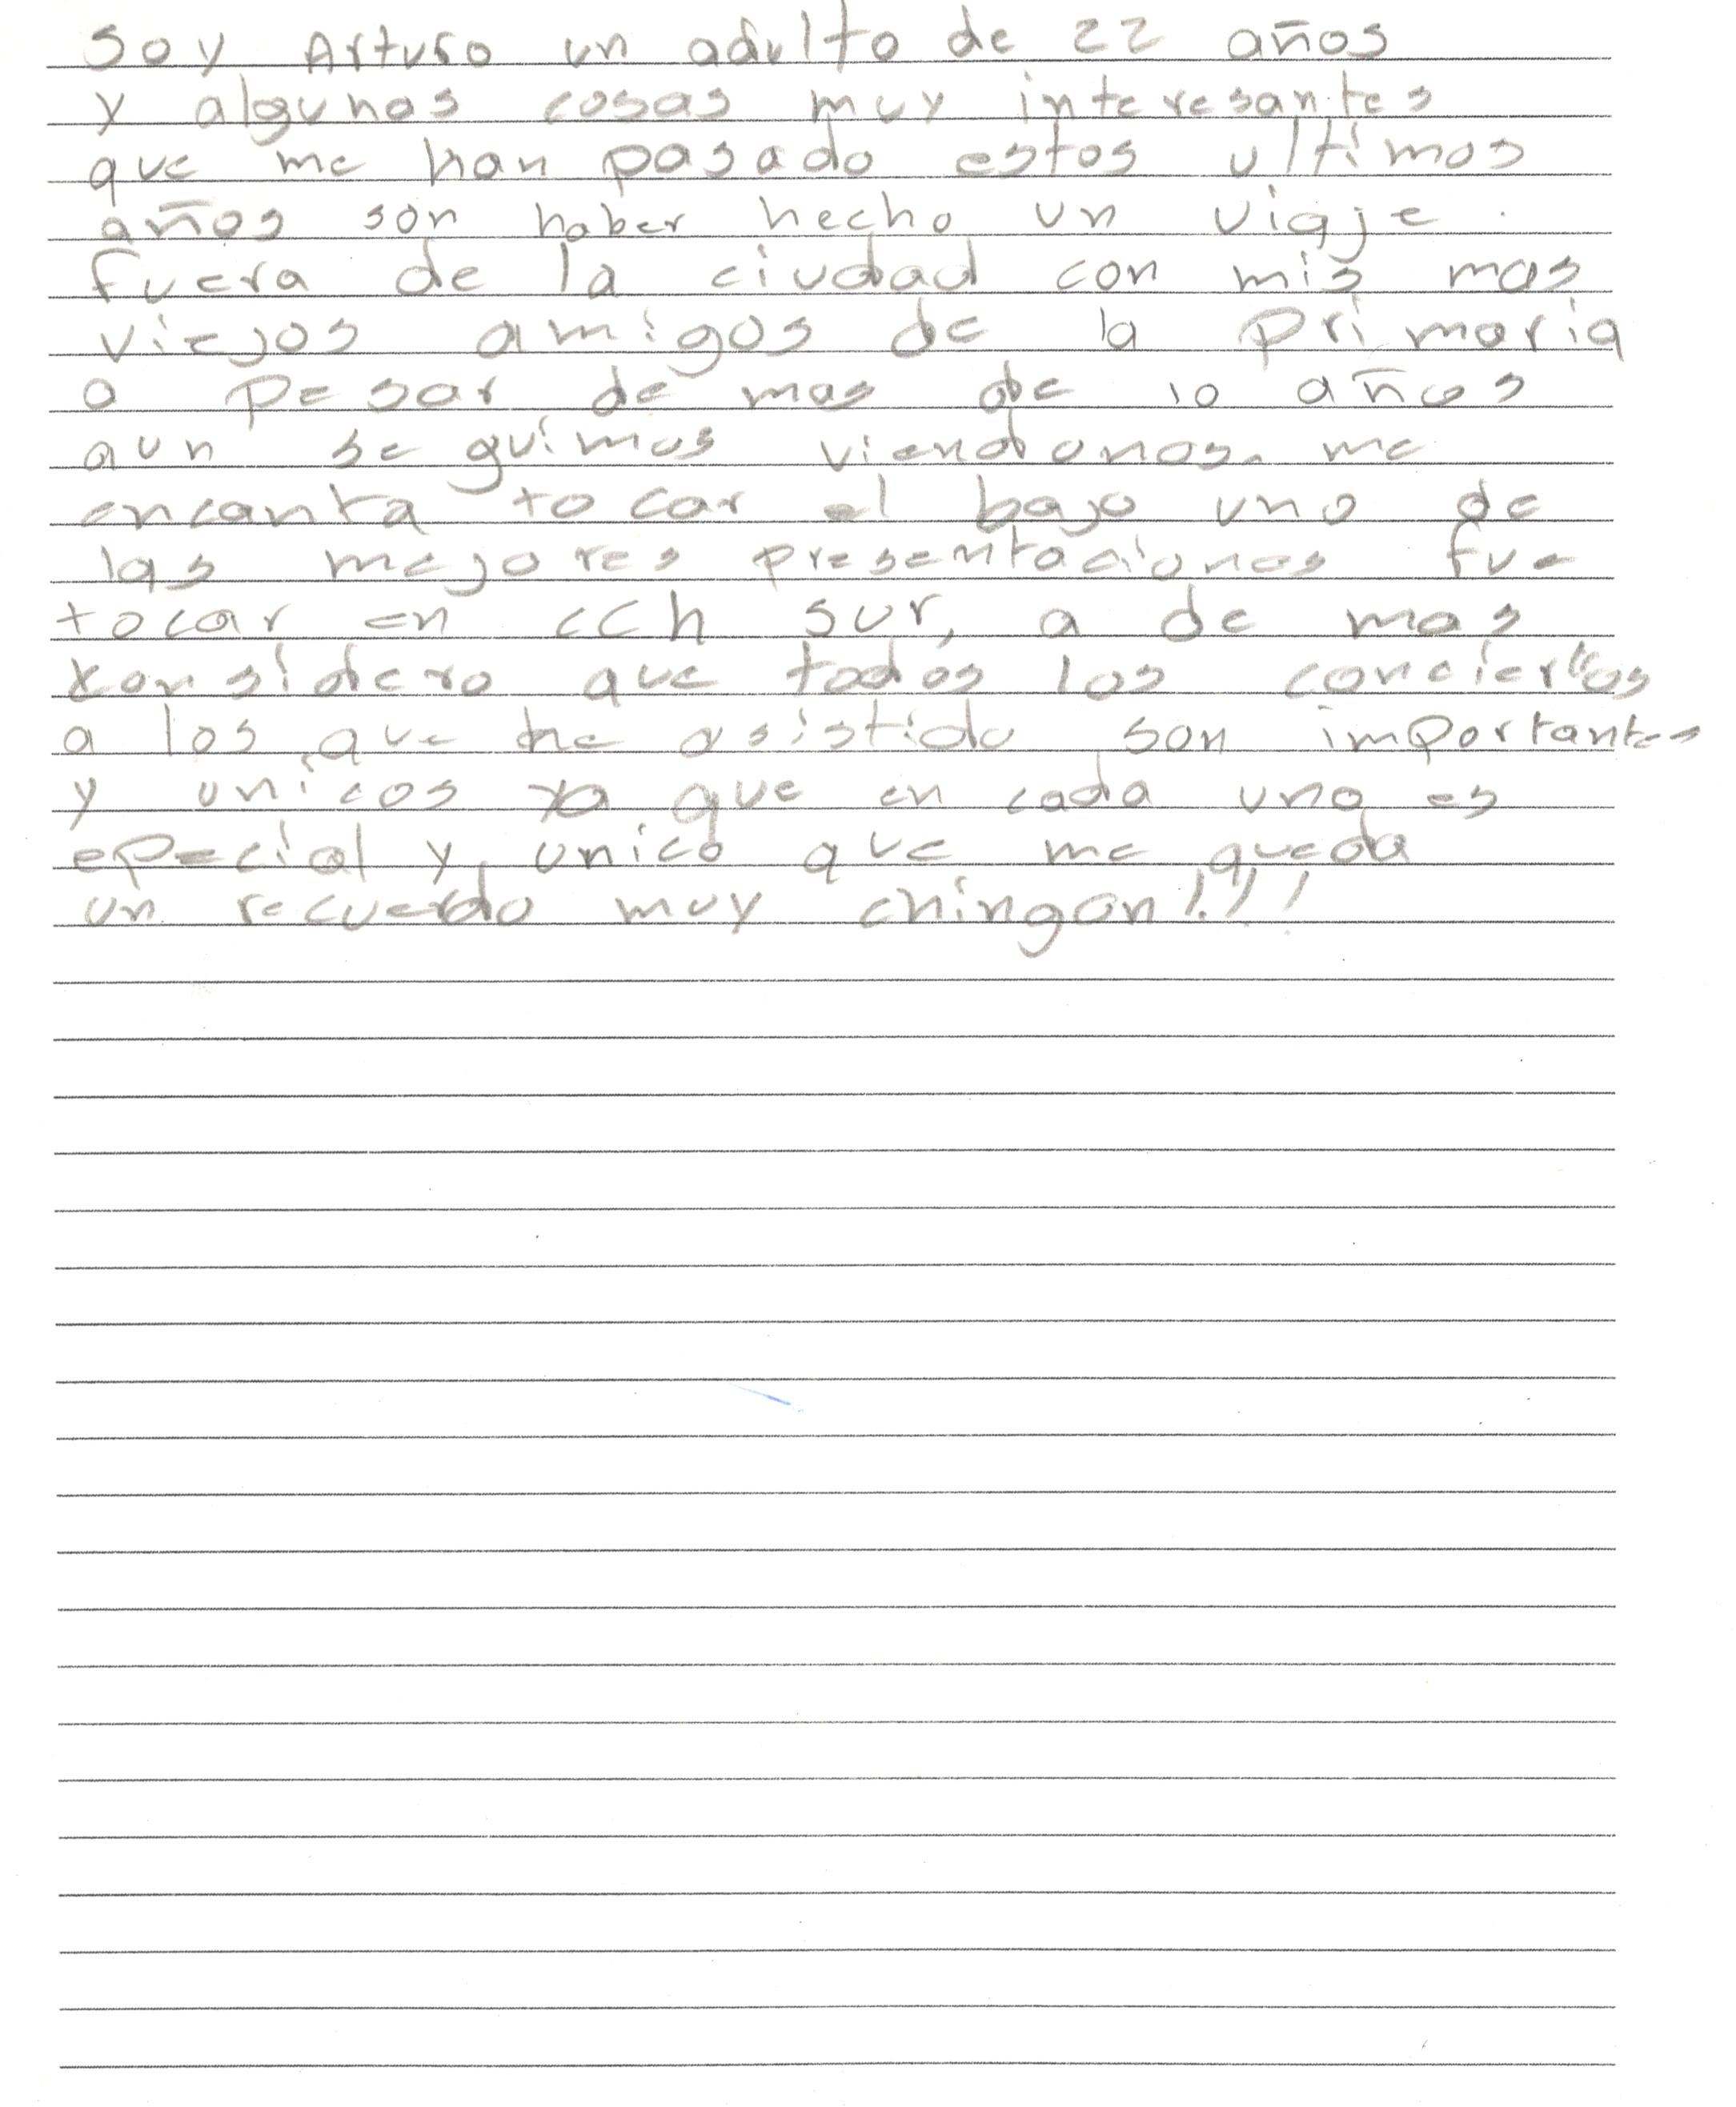 Soy Arturo un adulto de 22 años
y algunas cosas muy interesantes
que me han pasado estos ultimos
años son haber hecho un viaje
fuera de la ciudad con mis mas
viejos amigos de la primaria
a pesar de mas de 10 años
aun seguimos viendonos. me
encanta tocar el bajo uno de
las mejores presentaciones fue
tocar en cch sur, a de mas
considero que todos los conciertos
a los que he asistido son importantes
y unicos ya que en cada uno es
epecial y unico que me queda
un recuerdo muy chingon!!!